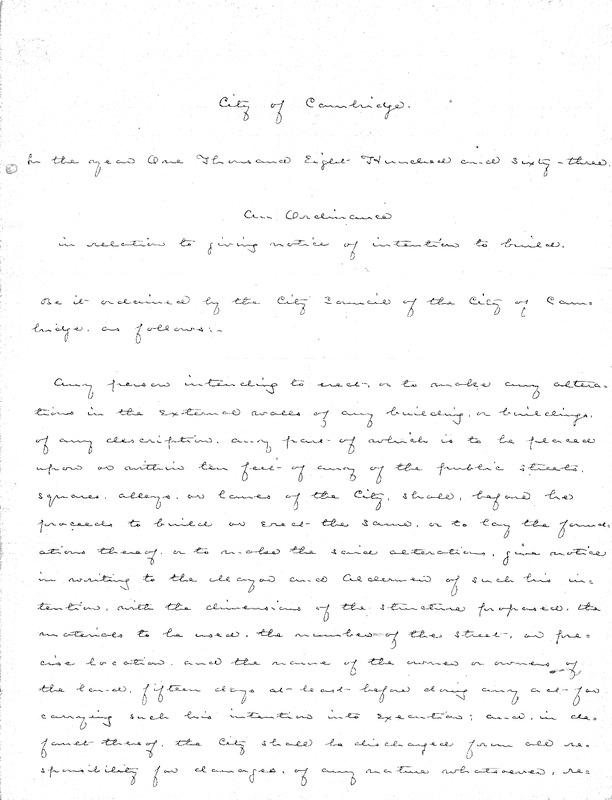 City of Cambridge.
In the year One Thousand Eight Hundred and Sixty-three.
An Ordinance
in relation to giving notice of intention to build.
Be it ordained by the City Council of the City of Cam-
bridge, as follows:-
Any person intending to erect, or to make any altera-
tions in the external walls of any building, or buildings,
of any description, any part of which is to be placed
upon or within ten feet of any of the public streets,
squares, alleys, or lanes of the City, shall, before he
proceeds to build or erect the same, or to lay the found-
ations thereof, or to make the said alterations, give notice
in writing to the Mayor and Aldermen of such his in-
tention, with the dimensions of the structure proposed, the
materials to be used, the number of the street, or pre-
cise location, and the name of the owner or owners of
the land, fifteen days at least before doing any act for
carrying such his intention into execution; and, in de-
fault thereof, the City shall be discharged from all re-
sponsibility for damages, of any nature whatsoever, re-